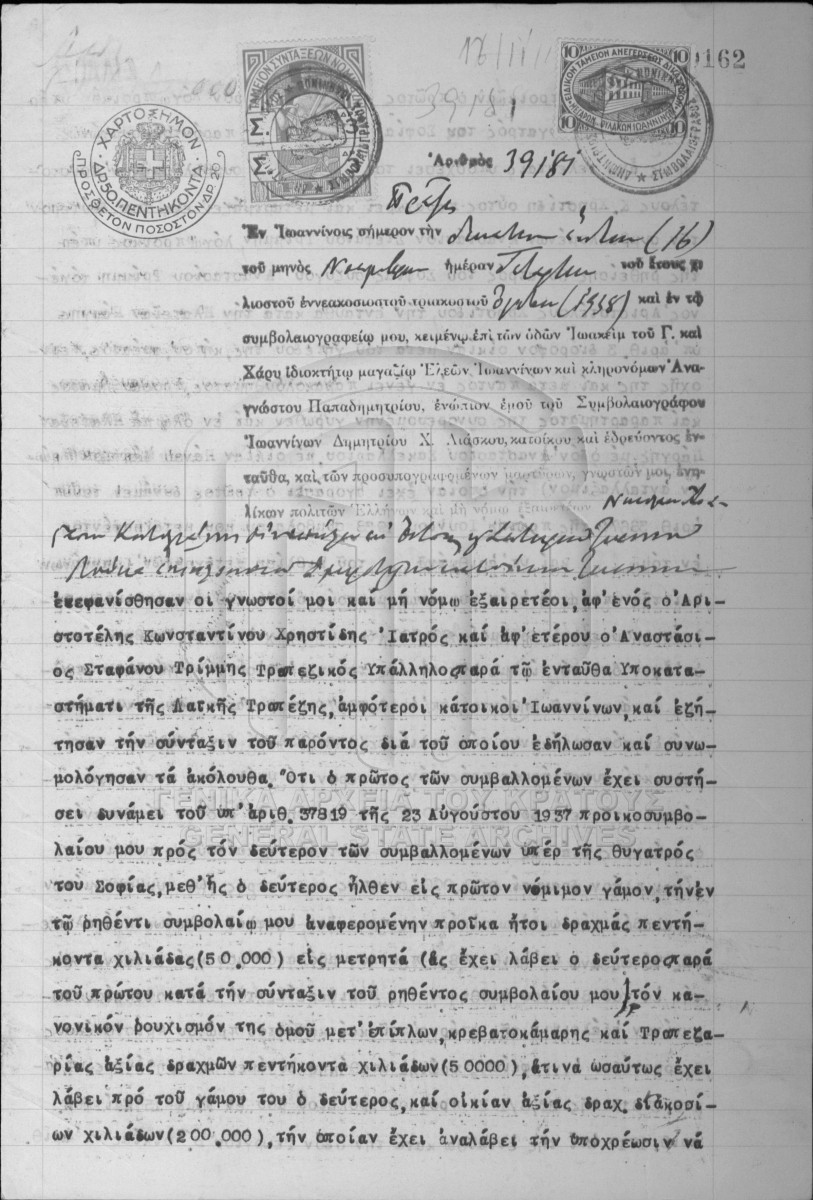 16/11/
162
39181
ΧΑΡΤΟΣΗΜΟΝ
ΔΡ. 50 ΠΕΝΤΗΚΟΝΤΑ
ΠΡΟΣΘΕΤΟΝ ΠΟΣΟΣΤΟΝ ΔΡ. 20
ΤΑΜΕΙΟΝ ΣΥΝΤΑΞΕΩΝ
10 10
10 10
Ἀριθμὸς 39181
Ἐν Ἰωαννίνοις σήμερον τὴν δεκάτην ἕκτην (16)
τοῦ μηνὸς Νοεμβρίου ἡμέραν Τετάρτην τοῦ ἔτους χι
λιοστοῦ ἐννεακοσιοστοῦ τριακοστοῦ ὀγδόου (1938) καὶ ἐν τῷ
συμβολαιογραφείῳ μου, κειμένῳ ἐπὶ τῶν ὁδῶν Ἰωακεὶμ τοῦ Γ. καὶ
Χάρυ ἰδιοκτήτῳ μαγαζίῳ Ἐλεῶν Ἰωαννίνων καὶ κληρονόμων Ἀνα-
γνώστου Παπαδημητρίου, ἐνώπιον ἐμοῦ τοῦ Συμβολαιογράφου
Ἰωαννίνων Δημητρίου Χ. Λιάσκου, κατοίκου καὶ ἑδρεύοντος ἐν-
ταῦθα, καὶ τῶν προσυπογραφομένων μαρτύρων, γνωστῶν μοι, ἐνη-
λίκων πολιτῶν Ἑλλήνων καὶ μὴ νόμῳ ἐξαιρετέων
ἐνεφανίσθησαν οἱ γνωστοί μοι καί μή νόμω ἐξαιρετέοι, ἀφ' ἑνός ὁ Ἀρι-
στοτέλης Κωνσταντίνου Χρηστίδης Ἰατρός καί ἀφ' ἑτέρου ὁ Ἀναστάσι-
ος Σταφάνου Τρίμμης Τραπεζικός Υπάλληλος παρά τῶ ἐνταῦθα Υποκατα-
στήματι τῆς Λαϊκῆς Τραπέζης, ἀμφότεροι κάτοικοι Ἰωαννίνων, καί ἐζή-
τησαν τήν σύνταξιν τοῦ παρόντος διά τοῦ ὁποίου ἐδήλωσαν καί συνω-
μολόγησαν τά ἀκόλουθα. Ὅτι ὁ πρῶτος τῶν συμβαλλομένων ἔχει συστή-
σει δυνάμει τοῦ ὑπ' ἀριθ. 37819 τῆς 23 Αὐγούστου 1937 προικοσυμβο-
λαίου μου πρός τόν δεύτερον τῶν συμβαλλομένων ὑπέρ τῆς θυγατρός
του Σοφίας, μεθ' ἧς ὁ δεύτερος ἦλθεν εἰς πρῶτον νόμιμον γάμον, τήν ἐν
τῷ ρηθέντι συμβολαίω μου ἀναφερομένην προῖκα ἤτοι δραχμάς πεντή-
κοντα χιλιάδας (50.000) εἰς μετρητά (ἅς ἔχει λάβει ὁ δεύτερος παρά
τοῦ πρώτου κατά τήν σύνταξιν τοῦ ρηθέντος συμβολαίου μου) τόν κα-
νονικόν ρουχισμόν της ὁμοῦ μετ' ἐπίπλων, κρεβατοκάμαρης καί Τραπεζα-
ρίας ἀξίας δραχμῶν πεντήκοντα χιλιάδων (50000), ἅτινα ὡσαύτως ἔχει
λάβει πρό τοῦ γάμου του ὁ δεύτερος, καί οἰκίαν ἀξίας δραχ. διακοσί-
ων χιλιάδων (200.000), τήν ὁποίαν ἔχει ἀναλάβει τήν ὑποχρέωσιν νά
ΓΕΝΙΚΑ ΑΡΧΕΙΑ ΤΟΥ ΚΡΑΤΟΥΣ
GENERAL STATE ARCHIVES